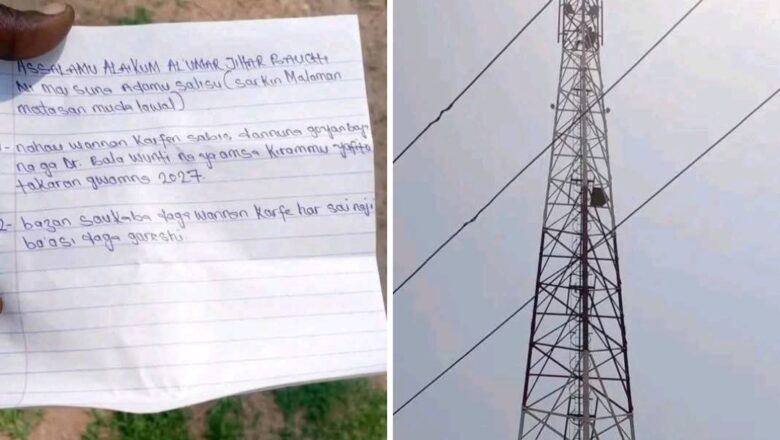 ASSALAMU ALAIKUM AL'UMAR JIHAR BAUCHI
Ni mai suna Adamu Salisu (sarkin Malaman
matasan muda lawal)
1- nahau wannan Karfen sabis dannuna goyan bay
na ga Dr. Bala Wunti na ya amsa Kirammu yafito
takaran gwamna 2027.
2- bazan saukaba daga wannan Karfe har sai naji
ba'asi daga gareshi.